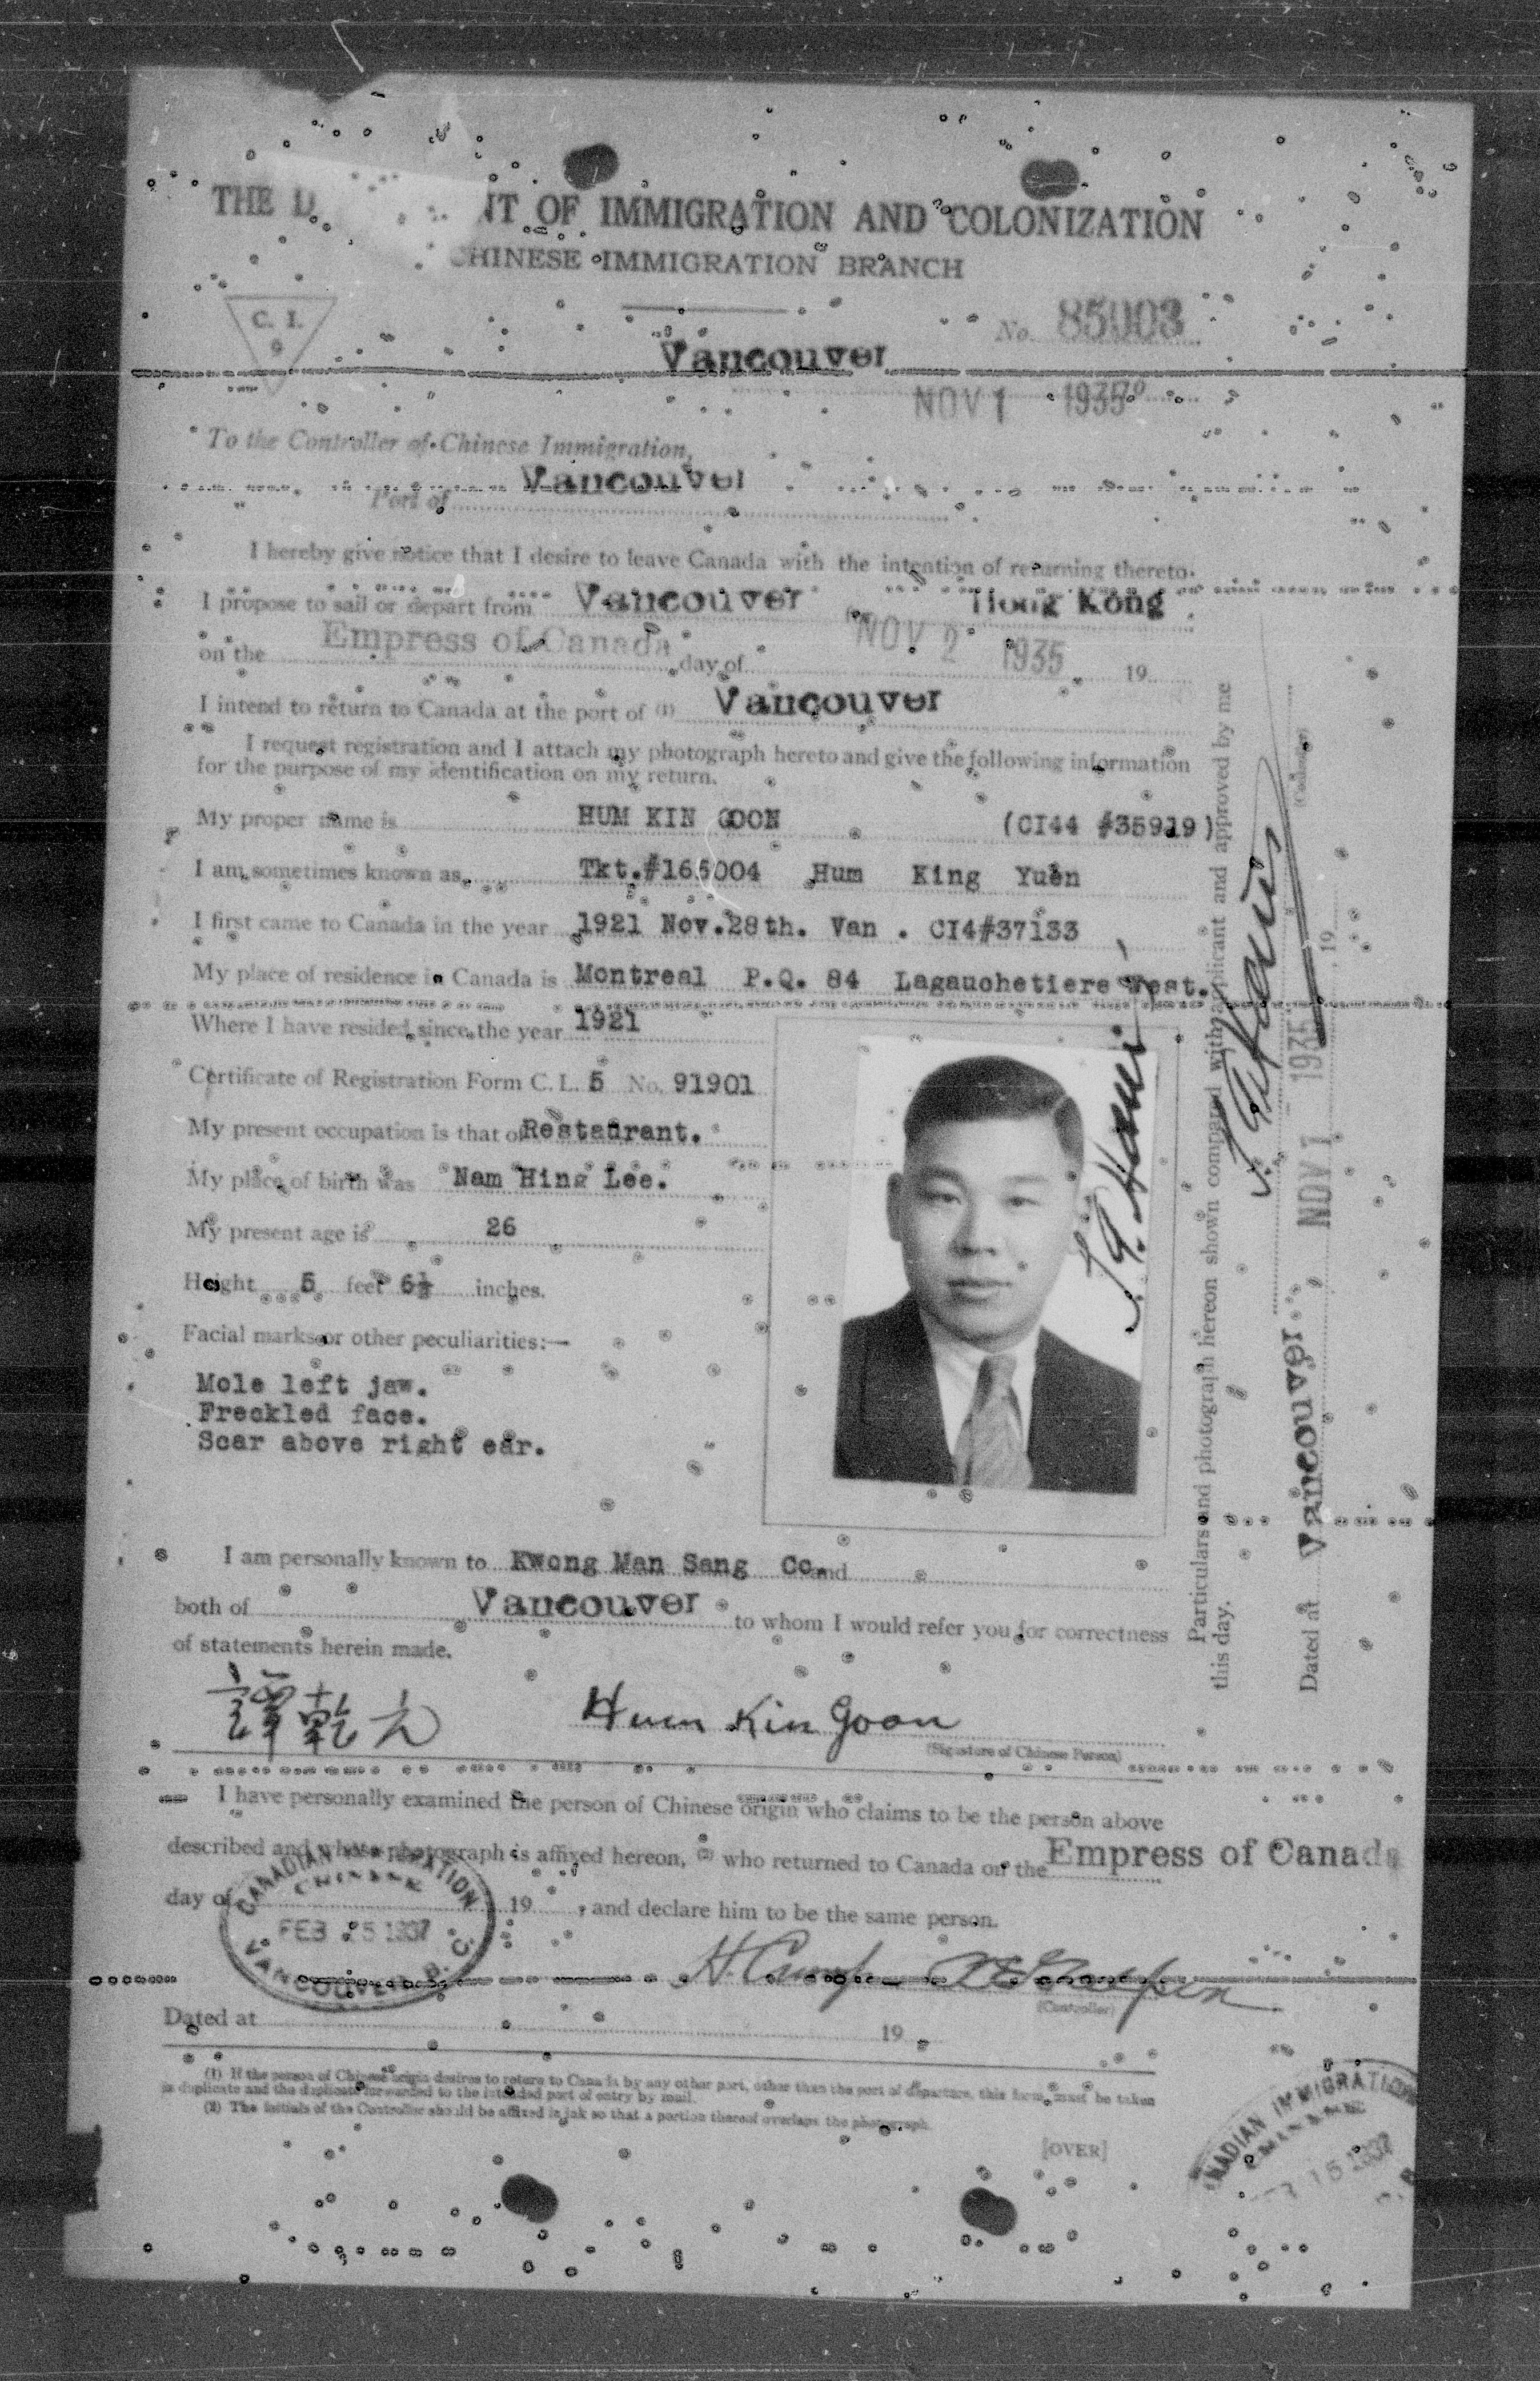 THE D NT OF IMMIGRATION AND COLONIZATION
CHINESE IMMIGRATION BRANCH
C. I.
9
No. 85003
Vancouver
NOV 1 1935
To the Controller of Chinese Immigration,
Vancouver
Port of
I hereby give notice that I desire to leave Canada with the intention of returning thereto.
I propose to sail or depart from Vancouver Hong Kong
on the Empress of Canada day of NOV 2 1935 19
I intend to return to Canada at the port of (1) Vancouver
I request registration and I attach my photograph hereto and give the following information
for the purpose of my identification on my return.
My proper name is HUM KIN GOON (CI44 #35919)
I am sometimes known as Tkt.#165004 Hum King Yuen
I first came to Canada in the year 1921 Nov.28th. Van . CI4#37133
My place of residence in Canada is Montreal P.Q. 84 Lagauchetiere West.
Where I have resided since the year 1921
Certificate of Registration Form C. I. 5 No. 91901
My present occupation is that of Restaurant.
My place of birth was Nam Hing Lee.
My present age is 26
Height 5 feet 6½ inches.
Facial marks or other peculiarities:—
Mole left jaw.
Freckled face.
Scar above right ear.
I am personally known to Kwong Man Sang Co. and
both of Vancouver to whom I would refer you for correctness
of statements herein made.
譚乾元 Hum Kin Goon
(Signature of Chinese Person)
I have personally examined the person of Chinese origin who claims to be the person above
described and whose photograph is affixed hereon, (2) who returned to Canada on the Empress of Canada
day of 19 , and declare him to be the same person.
CANADIAN IMMIGRATION
CHINESE
FEB 15 1937
VANCOUVER B. C.
(Controller)
Dated at 19
(1) If the person of Chinese origin desires to return to Canada by any other port, other than the port of departure, this form must be taken
in duplicate and the duplicate forwarded to the intended port of entry by mail.
(2) The initials of the Controller should be affixed in ink so that a portion thereof overlaps the photograph.
[OVER]
Particulars and photograph hereon shown compared with applicant and approved by me
this day.
(Controller)
Dated at Vancouver, NOV 1 1935 19
NADIAN IMMIGRATION
CHINESE
15 1937